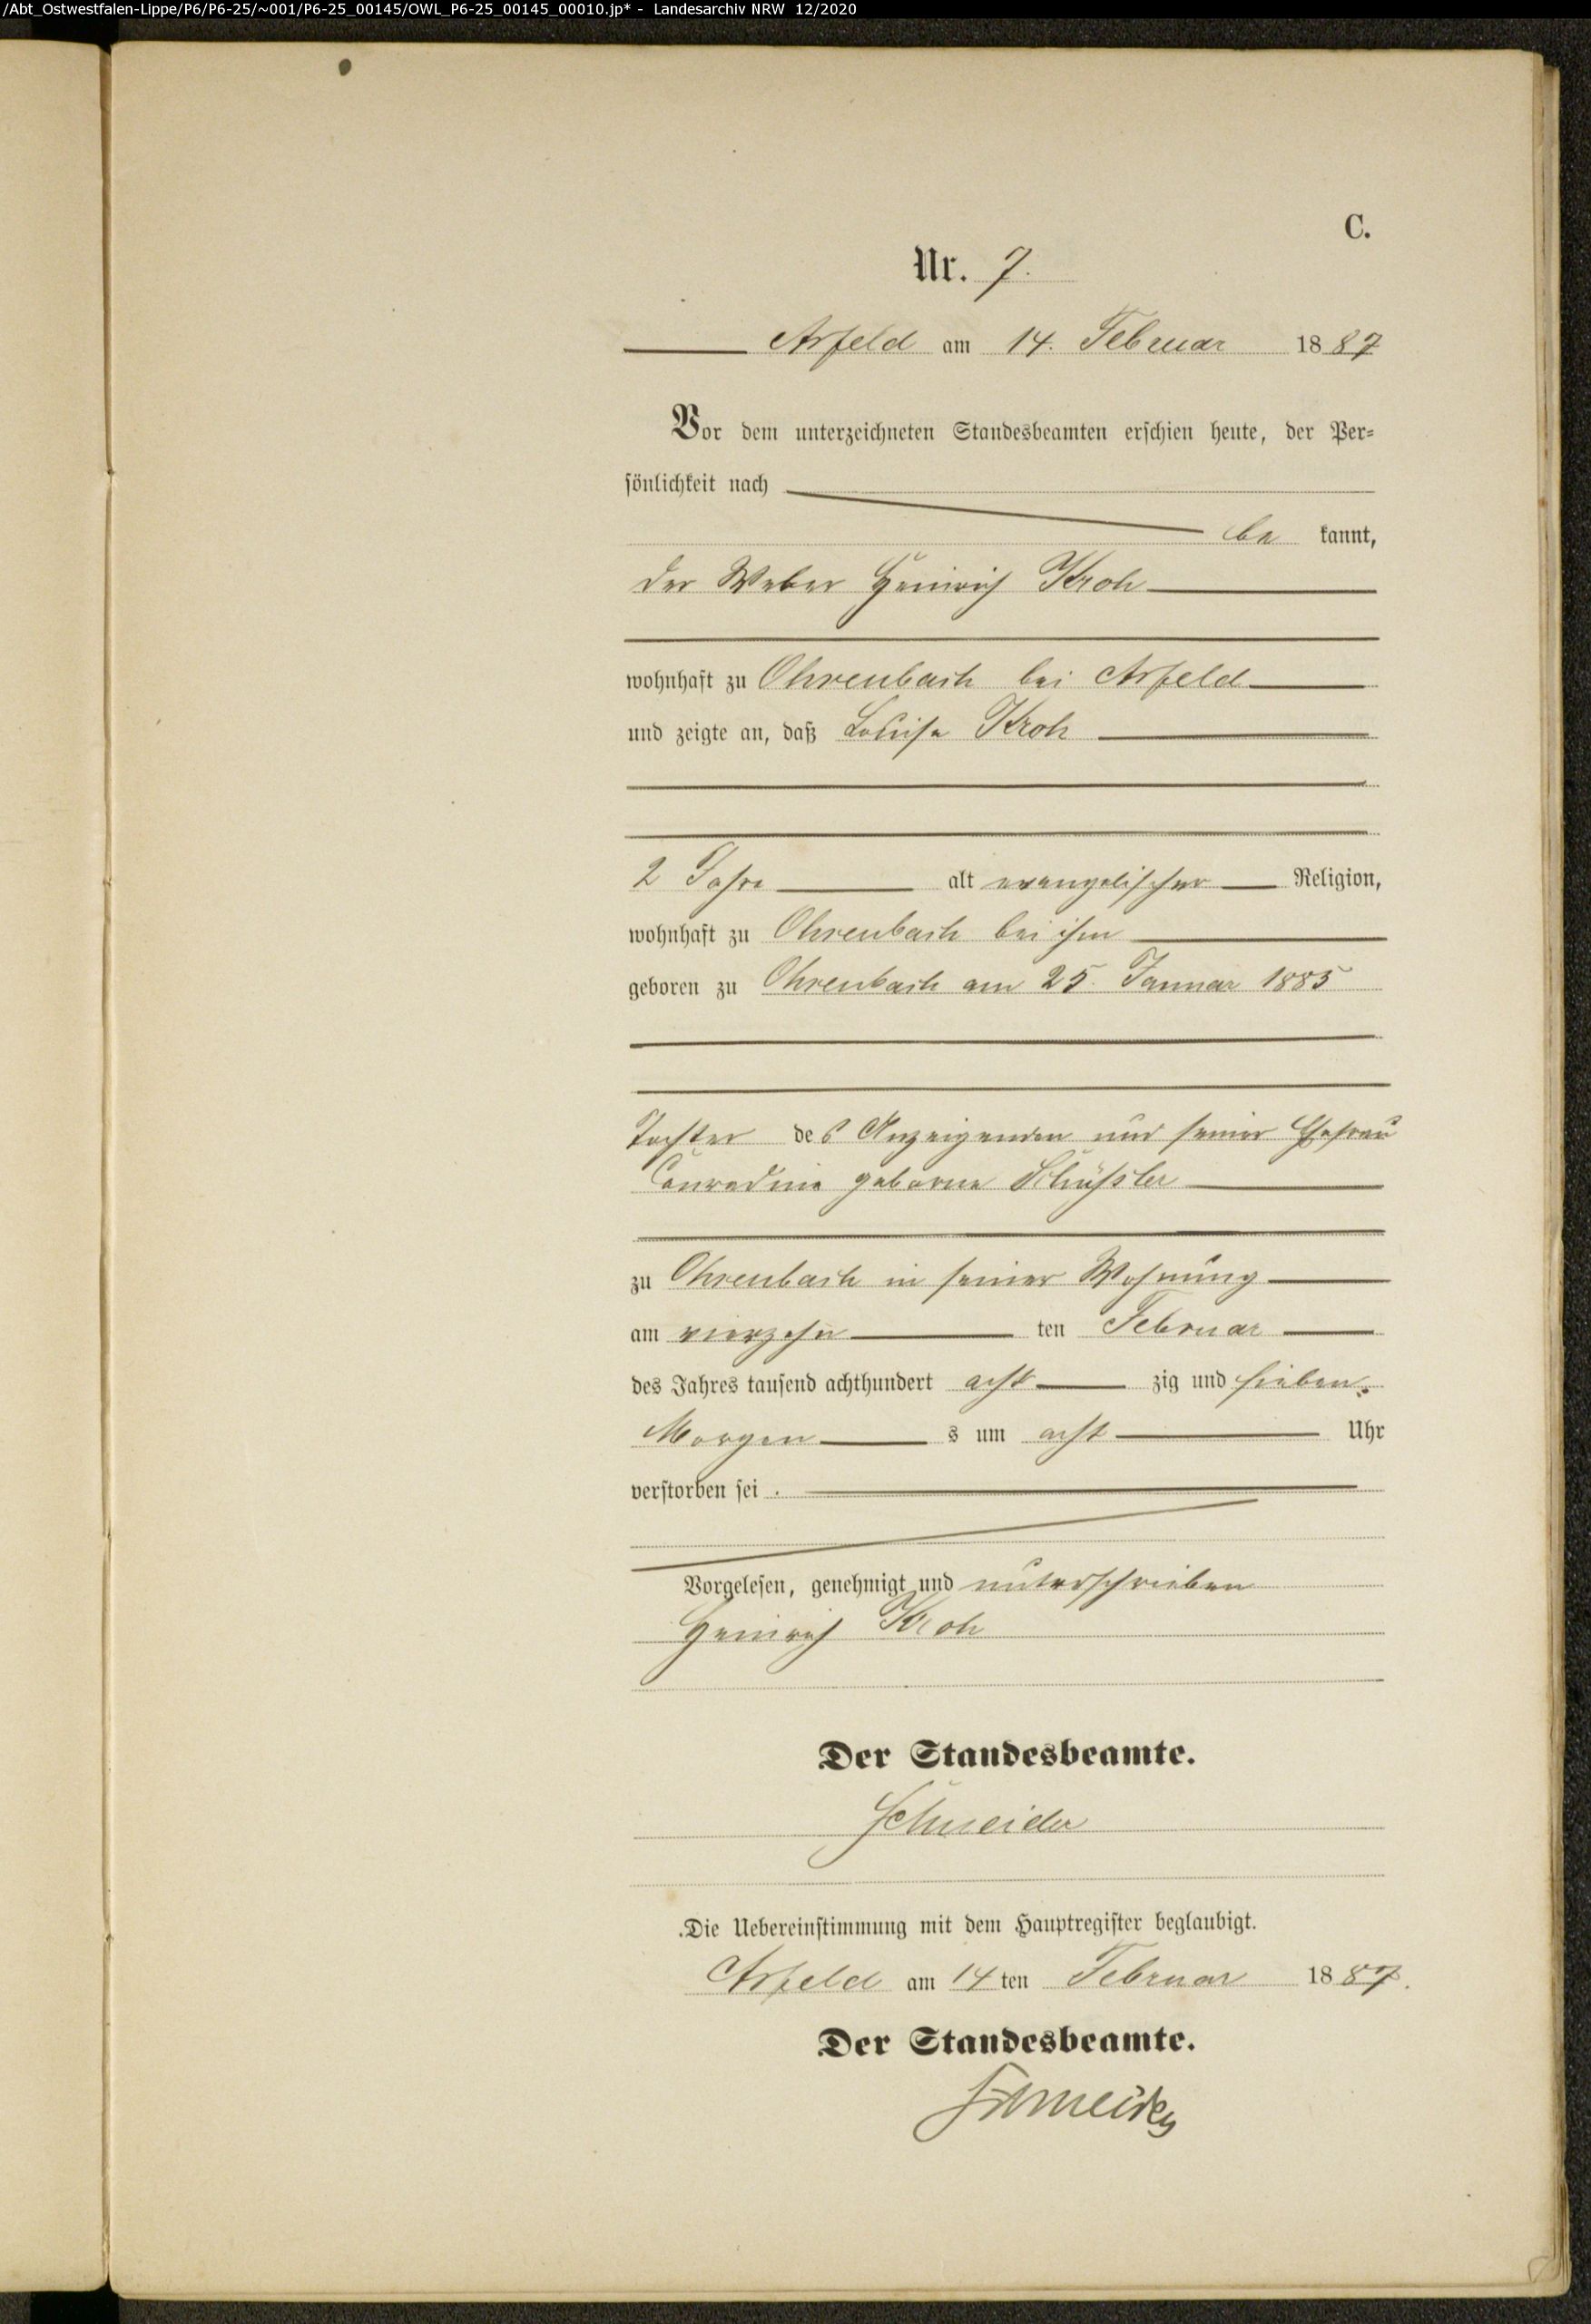 /Abt_Ostwestfalen-Lippe/P6/P6-25/~001/P6-25_00145/OWL_P6-25_00145_00010.jp* - Landesarchiv NRW 12/2020
C.
Nr. 7.
Arfeld am 14. Februar 1887
Vor dem unterzeichneten Standesbeamten erschien heute, der Per=
sönlichkeit nach
be kannt,
der Weber Heinrich Kroh
wohnhaft zu Ohrenbach bei Arfeld
und zeigte an, daß Louise Kroh
2 Jahre alt evangelischer Religion,
wohnhaft zu Ohrenbach bei ihm
geboren zu Ohrenbach am 25. Januar 1885
Tochter des Anzeigenden und seiner Ehefrau
Conradine geborne Schüssler
zu Ohrenbach in seiner Wohnung
am vierzehn ten Februar
des Jahres tausend achthundert acht zig und sieben.
Morgen s um acht Uhr
verstorben sei.
Vorgelesen, genehmigt und unterschrieben
Heinrich Kroh
Der Standesbeamte.
Schneider
Die Uebereinstimmung mit dem Hauptregister beglaubigt.
Arfeld am 14 ten Februar 1887.
Der Standesbeamte.
Schneider